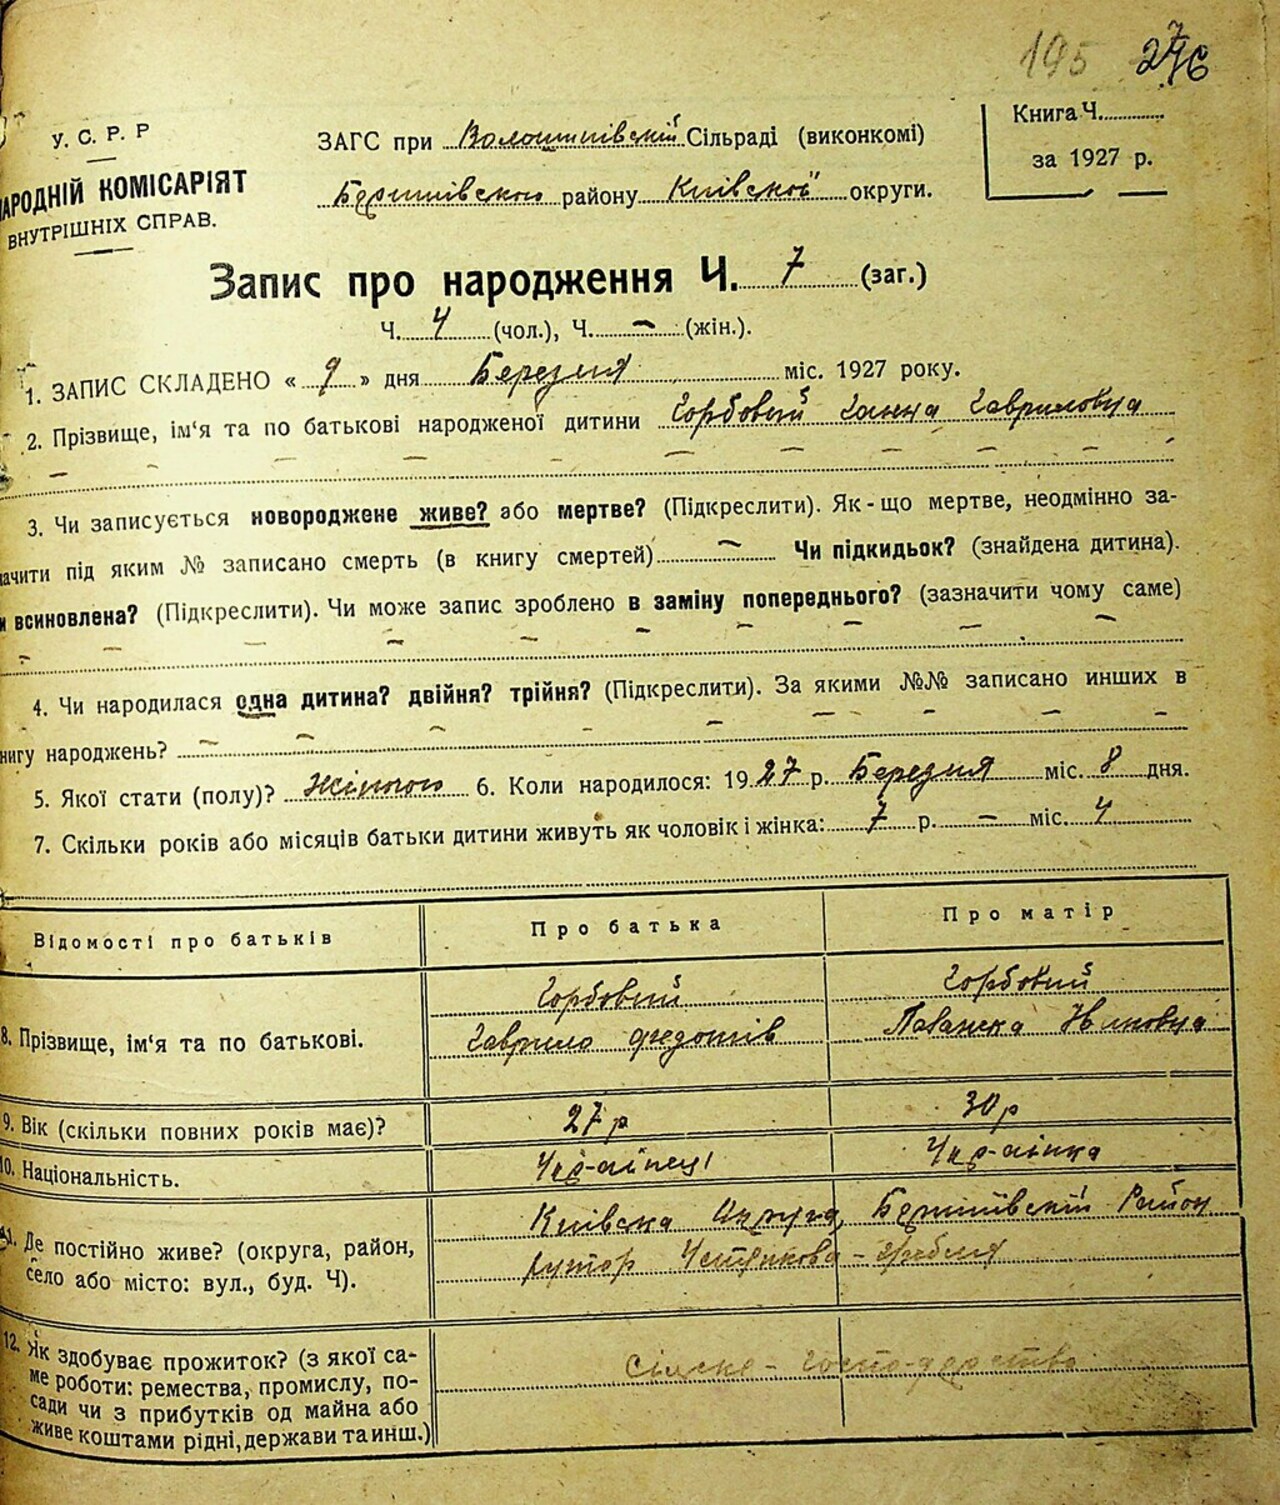 195 276
У. С. Р. Р
НАРОДНІЙ КОМІСАРІЯТ
ВНУТРІШНІХ СПРАВ.
ЗАГС при Волошинівскій Сільраді (виконкомі)
Баришівского району Київскої округи.
Книга Ч.
за 1927 р.
Запис про народження Ч. 7 (заг.)
Ч. 4 (чол.), Ч. – (жін.).
1. ЗАПИС СКЛАДЕНО « 9 » дня Березня міс. 1927 року.
2. Прізвище, ім'я та по батькові народженої дитини Горбовий Ганна Гавриловна
3. Чи записується новороджене живе? або мертве? (Підкреслити). Як-що мертве, неодмінно за-
начити під яким № записано смерть (в книгу смертей) – Чи підкидьок? (знайдена дитина).
и всиновлена? (Підкреслити). Чи може запис зроблено в заміну попереднього? (зазначити чому саме)
4. Чи народилася одна дитина? двійня? трійня? (Підкреслити). За якими №№ записано инших в
книгу народжень?
5. Якої стати (полу)? Жіночою 6. Коли народилося: 1927 р. Березня міс. 8 дня.
7. Скільки років або місяців батьки дитини живуть як чоловік і жінка: 7 р. – міс. 4
Відомості про батьків Про батька Про матір
Горбовий Горбовий
8. Прізвище, ім'я та по батькові. Гаврило Федотів Ивановна
9. Вік (скільки повних років має)? 27 р 30 р
10. Національність. Укр-аінец Укр-аінка
11. Де постійно живе? (округа, район,
село або місто: вул., буд. Ч).
Київска Округа, Баришівский Район
хутор – гребля
12. Як здобуває прожиток? (з якої са-
ме роботи: ремества, промислу, по-
сади чи з прибутків од майна або
живе коштами рідні, держави та инш.)
Сілске-господарство